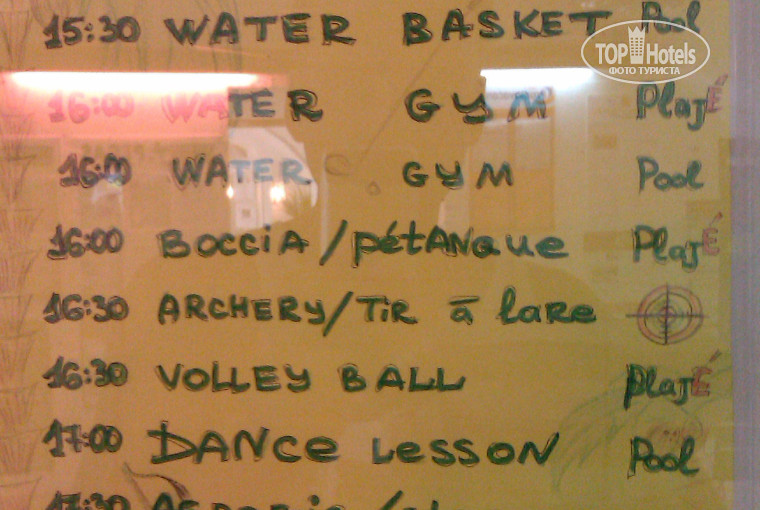 15:30 WATER BASKET Pool
TOP Hotels
ФОТО ТУРИСТА
16:00 WATER GYM PlajÉ
16:00 WATER GYM Pool
16:00 BOCCiA / pétANque PlajÉ
16:30 ARCHERY/TiR ā lare
16:30 VOLLEY BALL plajÉ
17:00 DANCe LeSSON Pool
17:30